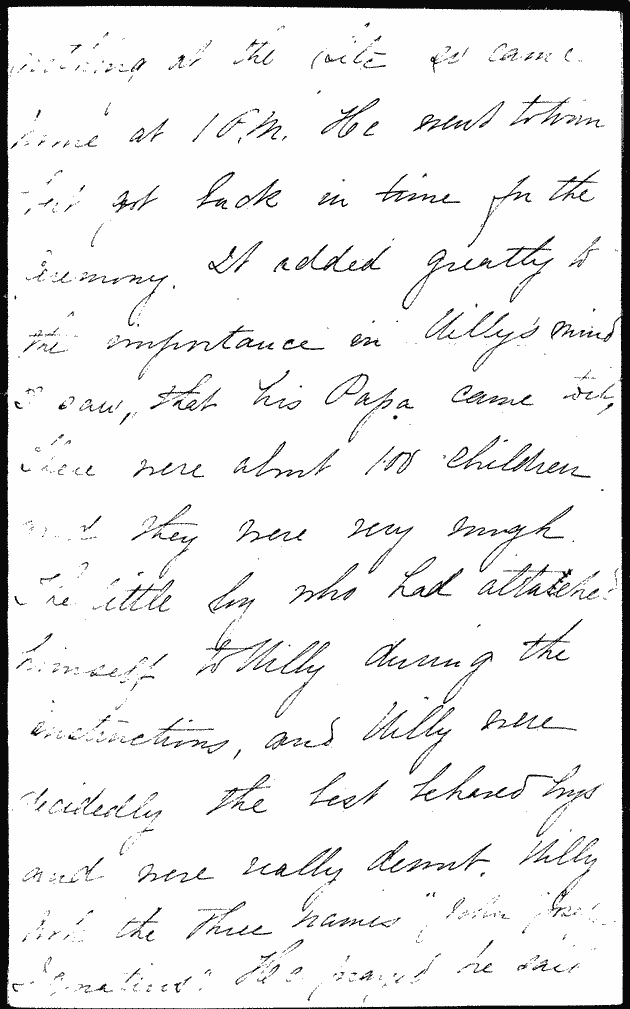 nothing at the site so came
home at 1 P.M. He went to town
but got back in time for the
Ceremony. It added greatly to
the importance in Willy's mind
I saw, that his Papa came too,
There were about 100 children
and they were very rough
The little boy who had attached
himself to Willy during the
instructions, and Willy were
decidedly the best behaved boys
and were really devout. Willy
took the three names "John Joseph
Ignatius". He prayed he said